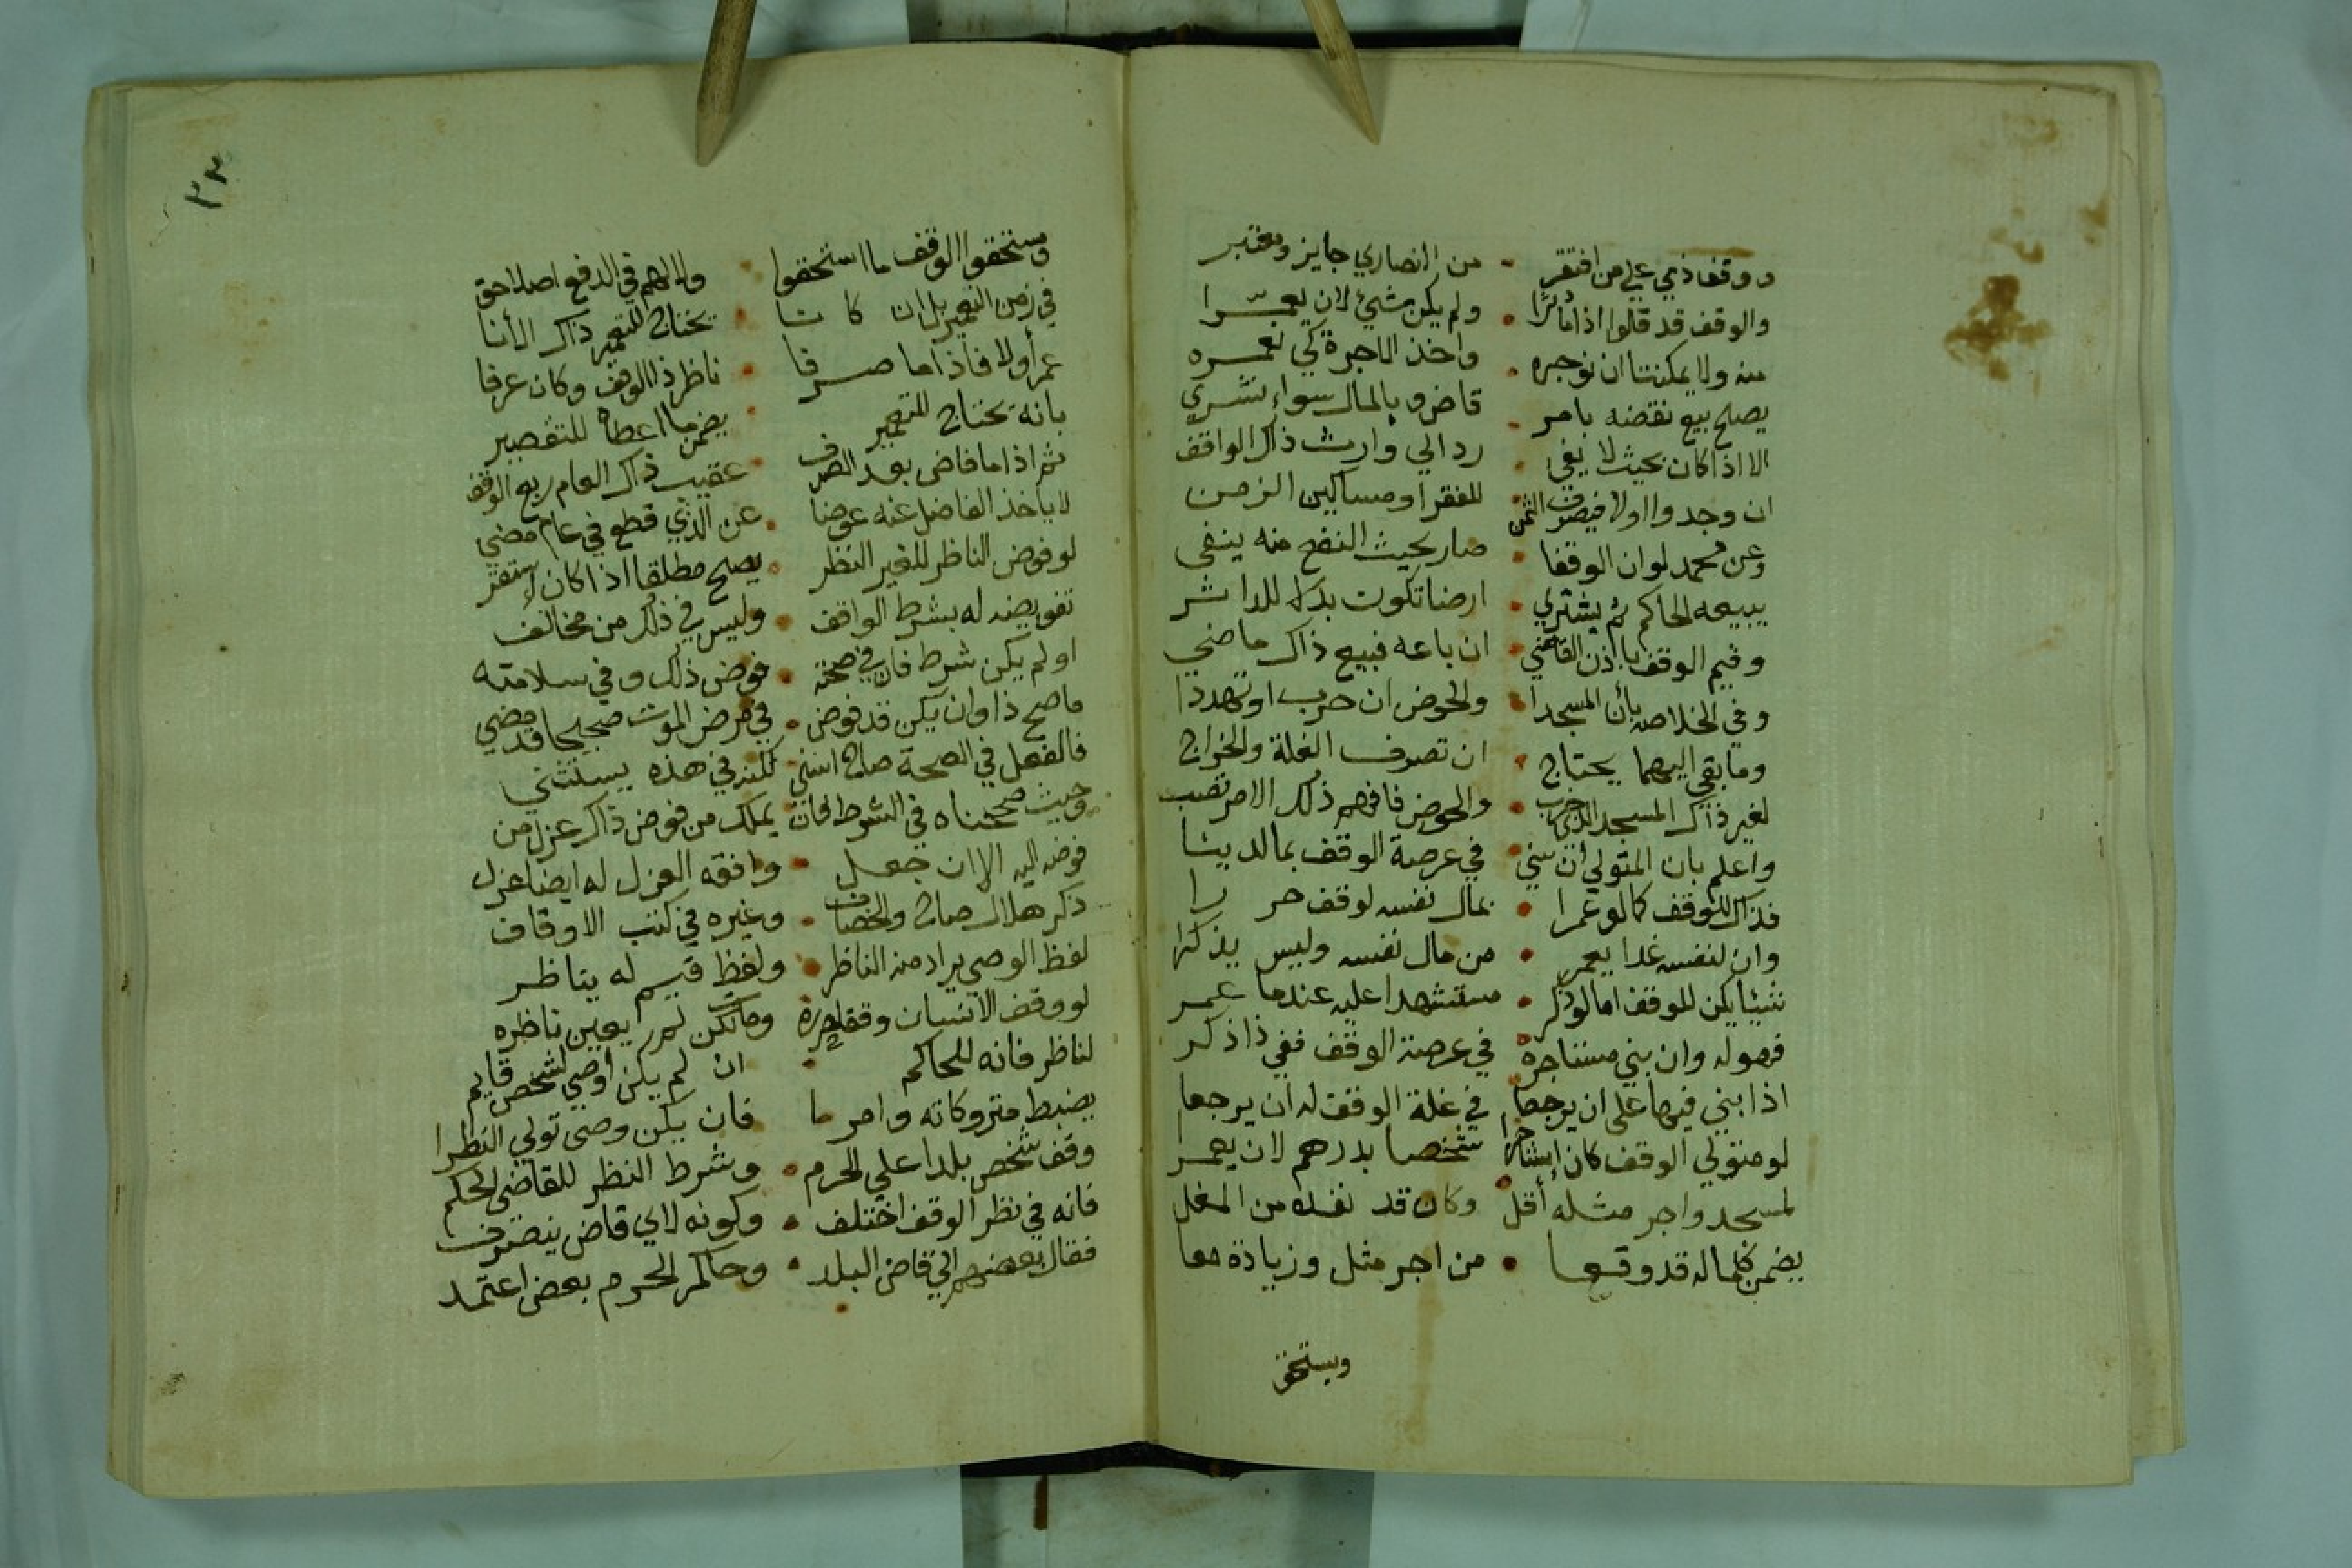 ووقف ذمي علي من افتقر من النصاري جايز ومعتبر
والوقف قد قالوا اذا ما ولم يكن شيئ لان يعمّرا
منه ولا يمكننا ان نوجره واخذ الاجرة كي نعمره
يصلح بيع نقضه بامر قاض وبالمال سواء نشري
الا اذا كان بحيث لا يفي رد الي وارث ذاك الواقف
ان وجدوا اولا فيصرف الثمن للفقرا ومساكين الزمن
وعن محمد لو ان الوقفا صار بحيث النفع منه ينفى
يبيعه الحاكم ثم يشتري ارضا تكون بدلا
وقيم الوقف باذن القاضي ان باعه فبيع ذاك ماضي
وفي الخلاصه بأن المسجدا والحوض ان خرب او تهددا
وما بقي اليهما يحتاج ان تصرف الغلة والخراج
لغير ذاك المسجد الذي خرب والحوض فافهم ذلك الامر تصب
واعلم بان المتولي ان بني في عرصة الوقف بمال
فذاك للوقف كما لو عمرا بمال نفسه لوقف حررا
وان لنفسه غدا يعمر من مال نفسه وليس يذكر
شيئا يكن للوقف اما لو ذكر مستشهدا عليه عندما عمر
فهو له وان بني مستاجره في عرصة الوقف ففي ذا ذكر
اذا بني فيها على ان يرجعا في غلة الوقف له ان يرجعا
لو متولي الوقف كان استاجرا شخصا بدرهم لان يعمر
لمسجد واجر مثله أقل وكان قد نقده من المغل
يضمن كلما له قد وقعا من اجر مثل وزيادة معا
ويستحق
٣٣
ومستحقوا الوقف ما استحقوا ولا لهم في الدفع اصلا حق
في زمن التعمير بل ان كانا يحتاج للتعمير ذاك الأنا
عمر أولا فاذا ما صرفا ناظر ذا الوقف وكان عرفا
بانه يحتاج للتعمير يضمن ما اعطاه للتقصير
ثم اذا ما فاض بعد الصرف عقيب ذاك العام ريع الوقف
لا ياخذ الفاضل عنه عوضا عن الذي قطع في عام مضي
لو فوض الناظر للغير النظر يصلح مطلقا اذا كان استقر
تفويضه له بشرط الواقف وليس في ذلك من مخالف
او لم يكن شرط فان في صحته فوض ذلك وفي سلامته
ما صح ذا وان يكن قد فوض في مرض الموت صحيحا قد مضي
فالفعل في الصحة صاح اسني لكنه في هذه يستثني
وحيث صححناه في الشرط فان يملك من فوض ذاك عزل من
فوضه اليه الا ان جعل وافقه العزل له ايضا عزل
ذكر هلال صاح والخصاف وغيره في كتب الاوقاف
لفظ الوصي يراد منه الناظر ولفظ قيم له يناظر
لو وقف الانسان وقفا حرره ومات لكن لم يعين ناظره
لناظر فانه للحاكم ان لم يكن أوصي لشخص قايم
يضبط متروكاته وامر ما فان يكن وصى تولي النظرا
وقف شخص بلدا علي الحرم وشرط النظر للقاضي الحكم
فانه في نظر الوقف اختلف وكونه لاي قاض ينصرف
فقال بعضهم الي قاض البلد وحاكم الحرم بعض اعتمد